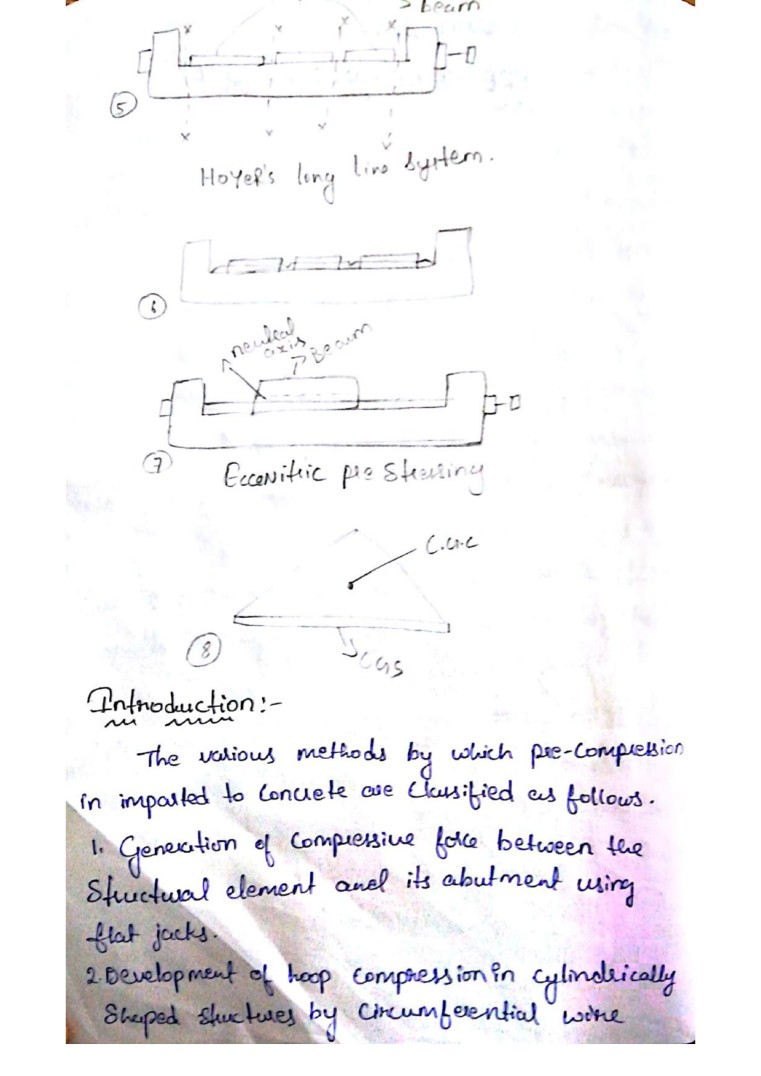 > beam
x x x x
5
x v v v
Hoyer's long line system.
6
neutral
axis
Beam
7
Eccenitric pre stressing
C.G.C
8
CGS
Introduction:-
The various methods by which pre-compression
in imparted to concrete are classified as follows.
1. Generation of compressive force between the
structural element and its abutment using
flat jacks.
2. Development of hoop compression in cylindrically
shaped structures by circumferential wire